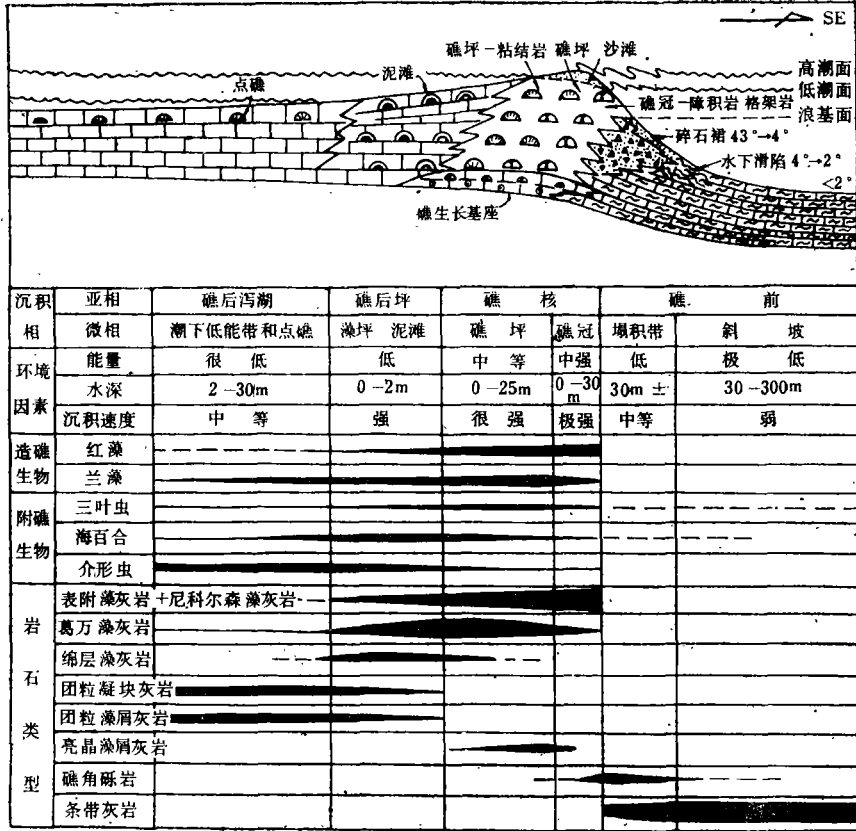 SE
礁坪-粘结岩 礁坪 沙滩
高潮面
泥滩
低潮面
点礁
礁冠-障积岩 格架岩
浪基面
碎石裙 43°→4°
水下滑陷 4°→2°
<2°
礁生长基座
沉积相 亚相 礁后泻湖 礁后坪 礁核 礁前
微相 潮下低能带和点礁 藻坪 泥滩 礁坪 礁冠 塌积带 斜坡
环境因素 能量 很低 低 中等 中强 低 极低
水深 2-30m 0-2m 0-25m 0-30m 30m± 30-300m
沉积速度 中等 强 很强 极强 中等 弱
造礁生物 红藻
兰藻
附礁生物 三叶虫
海百合
介形虫
岩石类型 表附藻灰岩+尼科尔森藻灰岩
葛万藻灰岩
绵层藻灰岩
团粒凝块灰岩
团粒藻屑灰岩
亮晶藻屑灰岩
礁角砾岩
条带灰岩